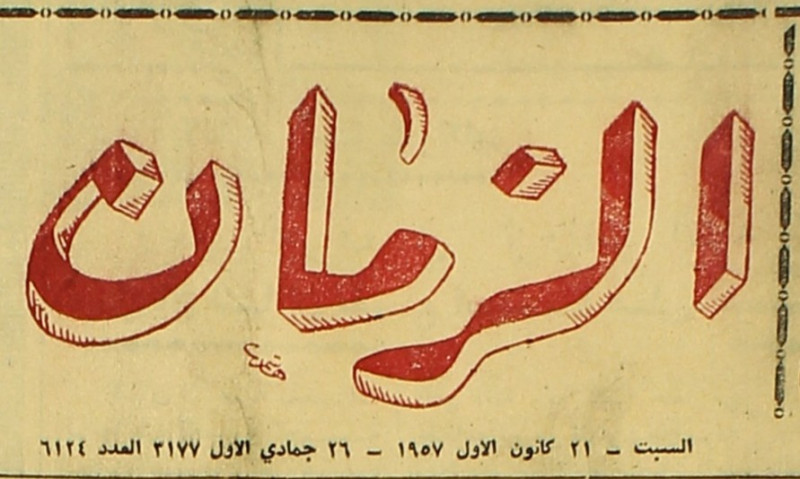 الزمان
السبت - ٢١ كانون الاول ١٩٥٧ - ٢٦ جمادي الاول ٣١٧٧ العدد ٦١٢٤